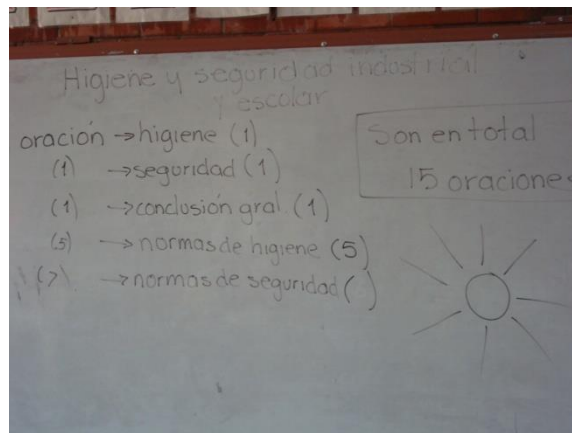 Higiene y seguridad industrial
y escolar
oración → higiene (1)
(1) → seguridad (1)
(1) → conclusión gral (1)
(5) → normas de higiene (5)
→ normas de seguridad ( )
Son en total
15 oraciones